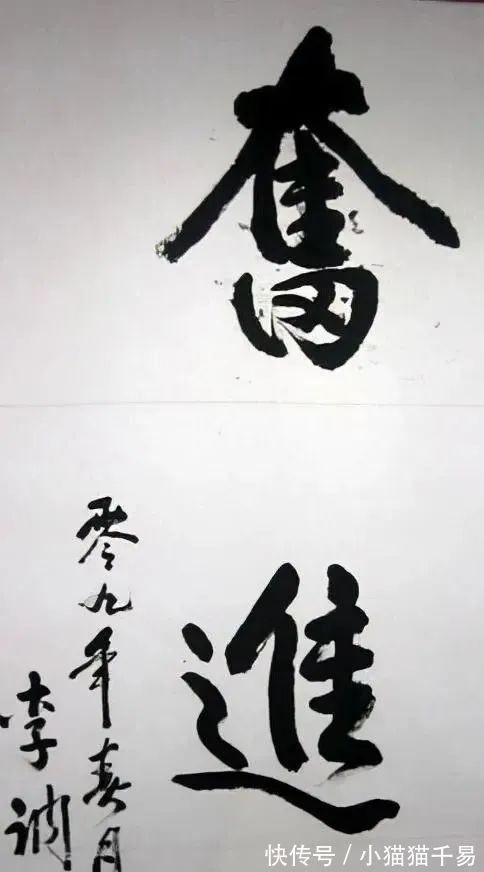 奮
進
零九年春月
李润
快传号/小猫猫千易